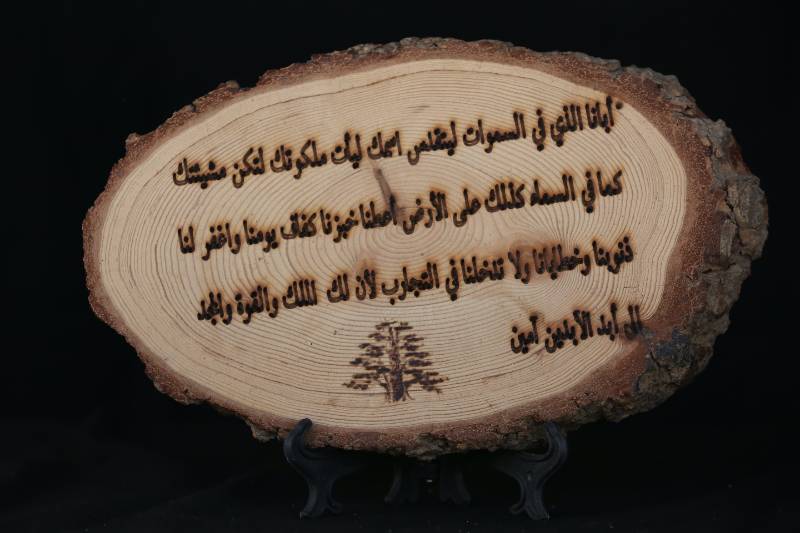 أبانا الذي في السموات ليتقدس اسمك ليأت ملكوتك لتكن مشيئتك
كما في السماء كذلك على الأرض أعطنا خبزنا كفاف يومنا واغفر لنا
ذنوبنا وخطايانا ولا تدخلنا في التجارب لأن لك الملك والقوة والمجد
الى أبد الآبدين آمين